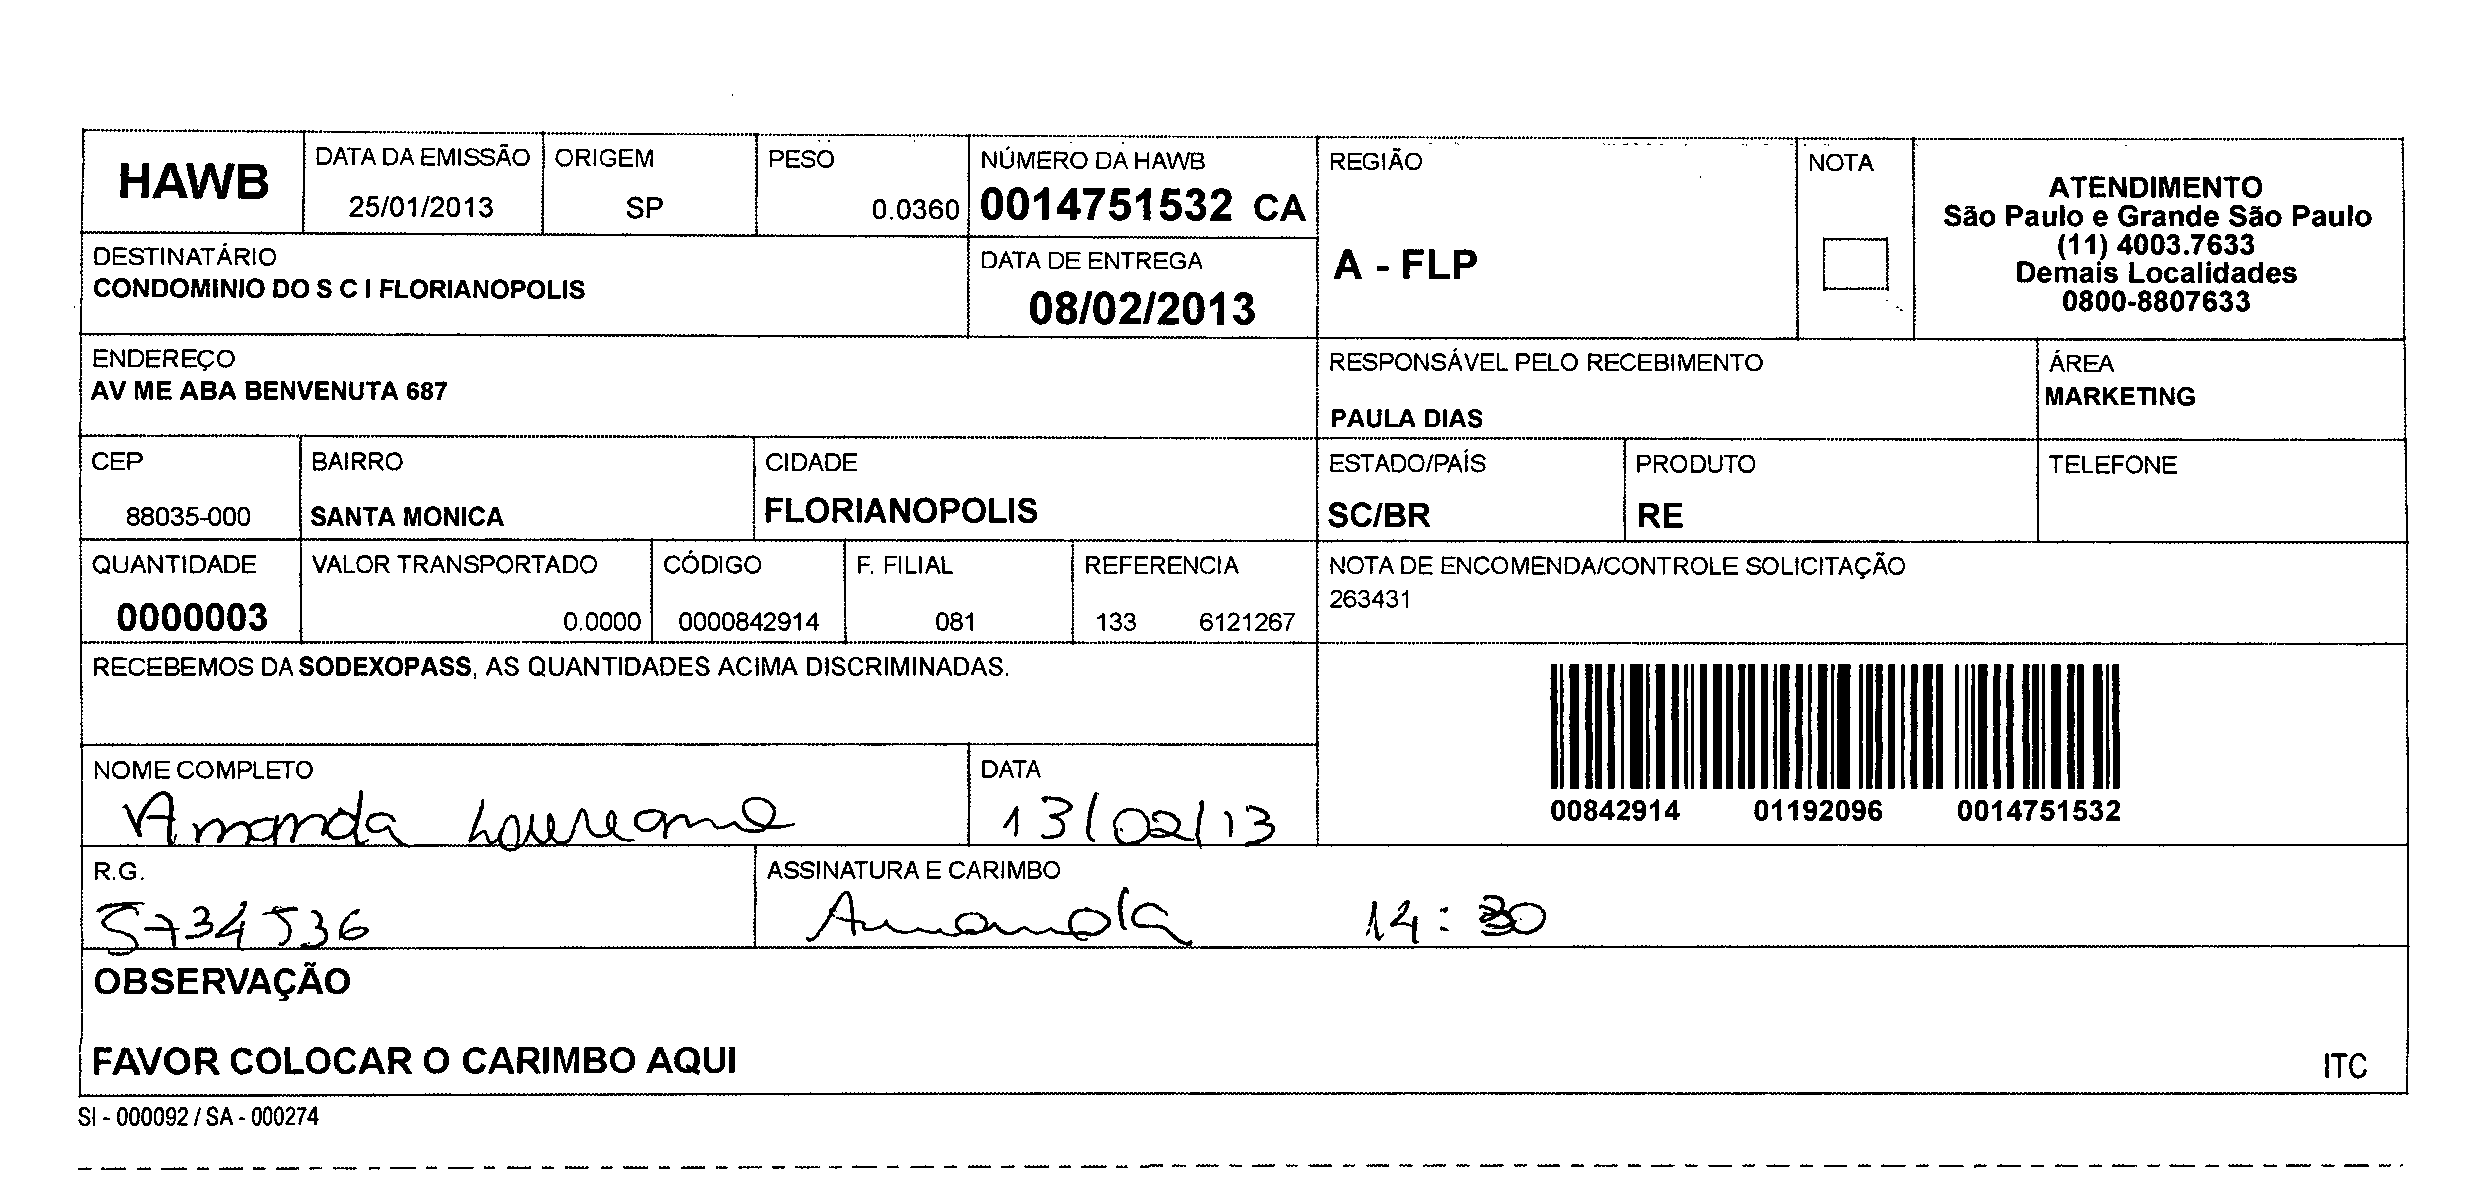 HAWB
DATA DA EMISSÃO
25/01/2013
ORIGEM
SP
PESO
0.0360
NÚMERO DA HAWB
0014751532 CA
REGIÃO
A - FLP
NOTA
ATENDIMENTO
São Paulo e Grande São Paulo
(11) 4003.7633
Demais Localidades
0800-8807633
DESTINATÁRIO
CONDOMINIO DO S C I FLORIANOPOLIS
DATA DE ENTREGA
08/02/2013
ENDEREÇO
AV ME ABA BENVENUTA 687
RESPONSÁVEL PELO RECEBIMENTO
PAULA DIAS
ÁREA
MARKETING
CEP
88035-000
BAIRRO
SANTA MONICA
CIDADE
FLORIANOPOLIS
ESTADO/PAÍS
SC/BR
PRODUTO
RE
TELEFONE
QUANTIDADE
0000003
VALOR TRANSPORTADO
0.0000
CÓDIGO
0000842914
F. FILIAL
081
REFERENCIA
133 6121267
NOTA DE ENCOMENDA/CONTROLE SOLICITAÇÃO
263431
RECEBEMOS DA SODEXOPASS, AS QUANTIDADES ACIMA DISCRIMINADAS.
00842914 01192096 0014751532
NOME COMPLETO
Amanda
DATA
13/02/13
R.G.
5734536
ASSINATURA E CARIMBO
Amanda 14:30
OBSERVAÇÃO
FAVOR COLOCAR O CARIMBO AQUI
ITC
SI - 000092 / SA - 000274